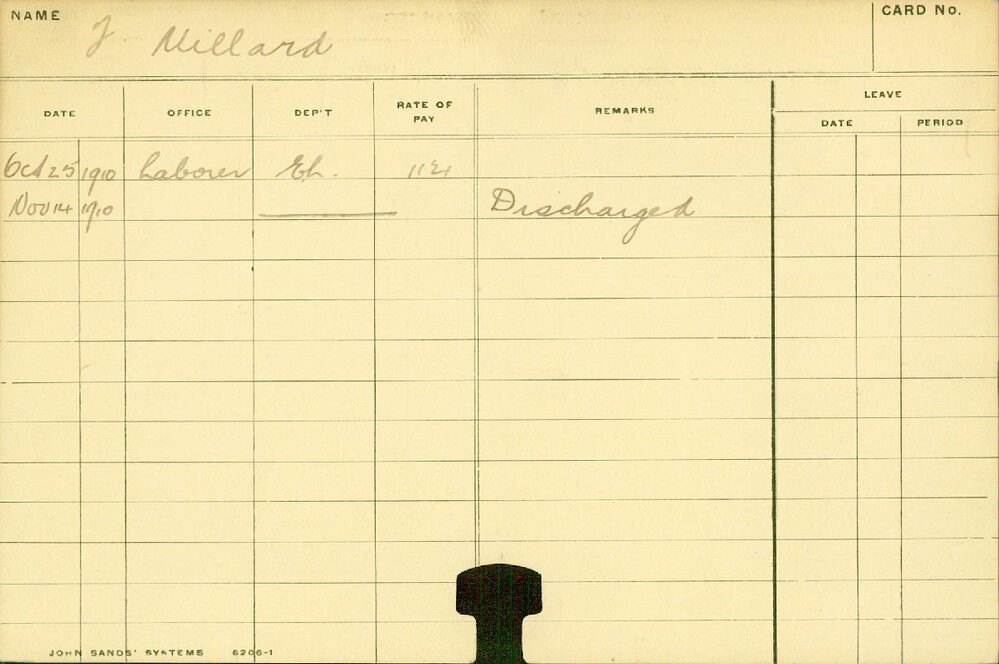 NAME J. Millard CARD No.
DATE OFFICE DEP'T RATE OF PAY REMARKS LEAVE
DATE PERIOD
Oct 25 1910 Laborer Eh.
Nov 14 1910 Discharged
JOHN SANDS' SYSTEMS 6206-1